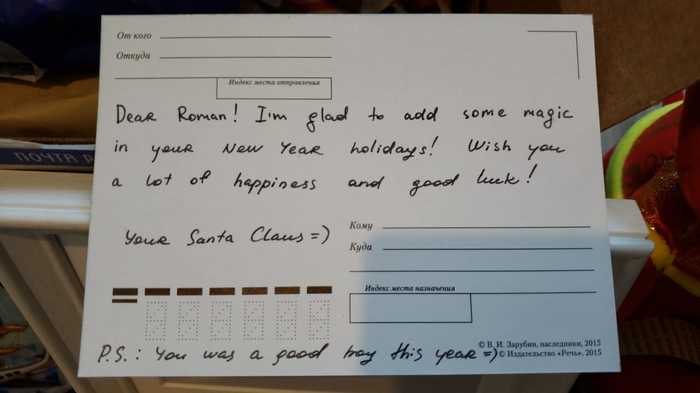 От кого
Откуда
Индекс места отправления
Dear Roman! I'm glad to add some magic
in your New Year holidays! Wish you
a lot of happiness and good luck!
Your Santa Claus =)
Кому
Куда
Индекс места назначения
© В. И. Зарубин, наследники, 2015
© Издательство «Речь», 2015
P.S.: You was a good boy this year =)
ПОЧТА